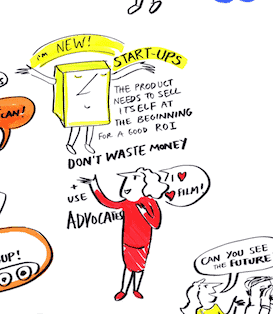 I'M NEW!
START-UPS
THE PRODUCT
NEEDS TO SELL
ITSELF AT
THE BEGINNING
FOR A GOOD ROI
DON'T WASTE MONEY
+
USE
ADVOCATES
I ♥
♥ FILM!
CAN!
UP!
CAN YOU SEE
THE FUTURE